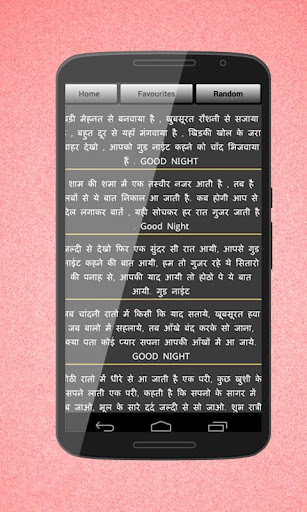 Home Favourites Random
बड़ी मेहनत से बनवाया है , खुबसूरत रौशनी से सजाया
है , बहुत दूर से यहाँ मंगवाया है , खिडकी खोल के जरा
बाहर देखो , आपको गुड नाईट कहने को चाँद भिजवाया
है . GOOD NIGHT
शाम की शमा में एक तस्वीर नजर आती है , तब है
लबों से ये बात निकाल आ जाती है. कब होगी आप से
दिल लगाकर बातें , यही सोचकर हर रात गुजर जाती है
. Good Night
जल्दी से देखो फिर एक सुंदर सी रात आयी, आपसे गुड
नाईट कहने की बात आयी, हम तो गुजर रहे थे सितारो
की पनाह से, आपकी याद आयी तो होठो पे ये बात
आयी. गुड नाईट
जब चांदनी रातों में किसी कि याद सताये, खूबसूरत हवा
जब बालो में सहलाये, तब आँखे बंद करके सो जाना,
क्या पता कोई प्यार सपना आपकी आँखों में आ जाये.
GOOD NIGHT
मीठी रातो में धीरे से आ जाती है एक परी, कुछ खुशी के
सपने लाती एक परी, कहती है कि सपनो के सागर में
डूब जाओ, भूल के सारे दर्द जल्दी से सो जाओ. शुभ रात्री